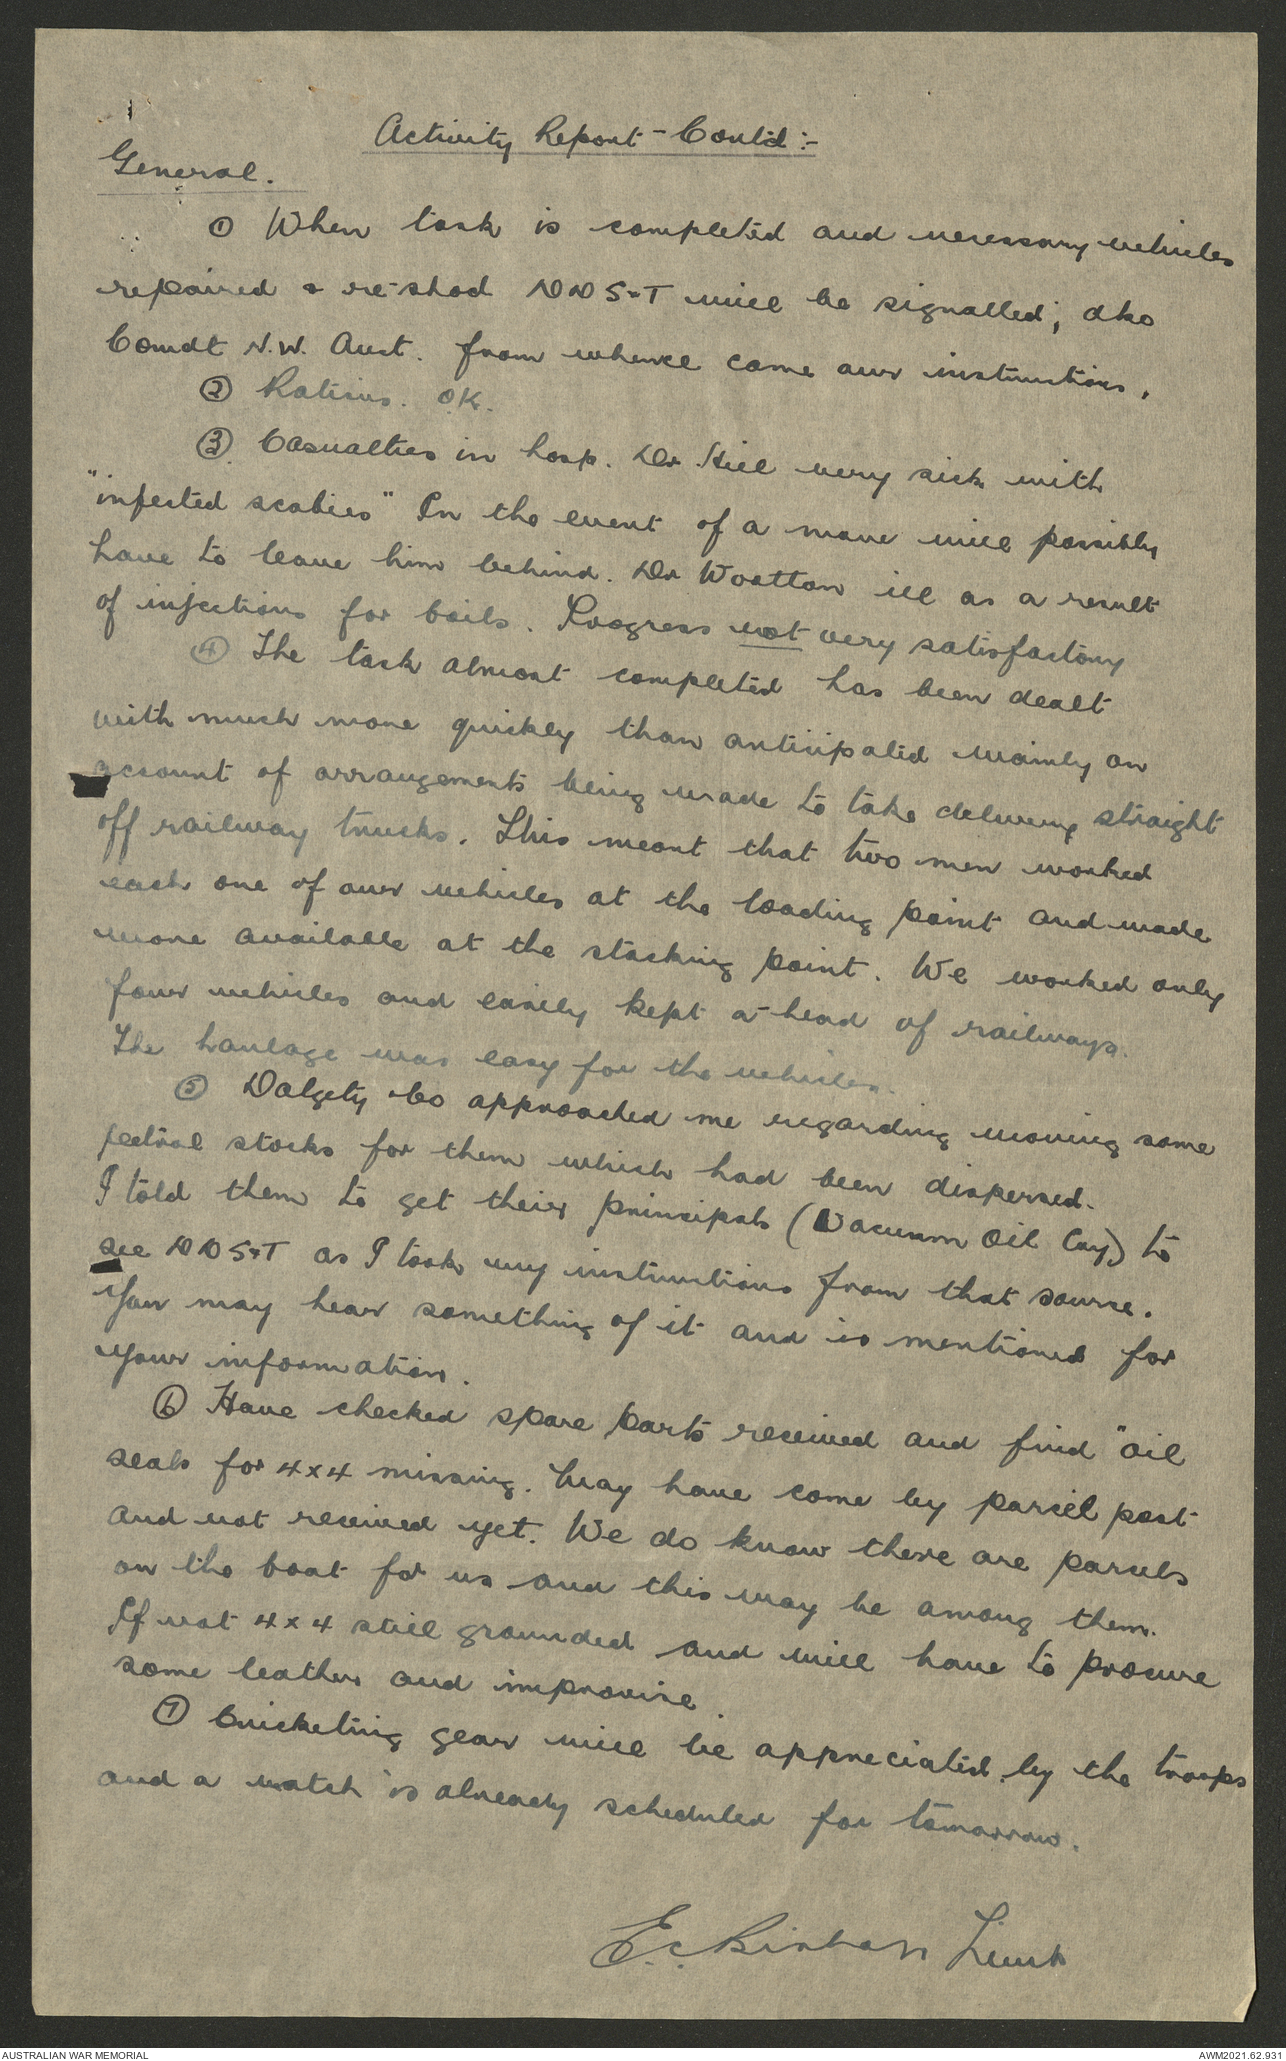 Activity Report - Contd :-
General.
① When task is completed and necessary vehicles
repaired & re-shod DDS&T will be signalled; also
Comdt N.W. Aust. from whence came our instructions.
② Rations. OK.
③ Casualties in hosp. Dr Hill very sick with
"infected scabies" In the event of a move will possibly
have to leave him behind. Dr Wootton ill as a result
of injections for boils. Progress not very satisfactory
④ The task almost completed has been dealt
with much more quickly than anticipated mainly on
account of arrangements being made to take delivery straight
off railway trucks. This meant that two men worked
each one of our vehicles at the loading point and made
more available at the stacking point. We worked only
four vehicles and easily kept a-head of railways.
The haulage was easy for the vehicles.
⑤ Dalgety & Co approached me regarding moving some
petrol stocks for them which had been dispersed.
I told them to get their principals (Vacuum Oil Coy) to
see DDS&T as I took my instructions from that source.
You may hear something of it and is mentioned for
your information.
⑥ Have checked spare parts received and find "oil
seals for 4x4 missing. May have come by parcel post
and not received yet. We do know there are parcels
on the boat for us and this may be among them.
If not 4x4 still grounded and will have to procure
some leather and improvise
⑦ Cricketing gear will be appreciated by the troops
and a match is already scheduled for tomorrow.
E.C. Lieut
AUSTRALIAN WAR MEMORIAL
AWM2021.62.931